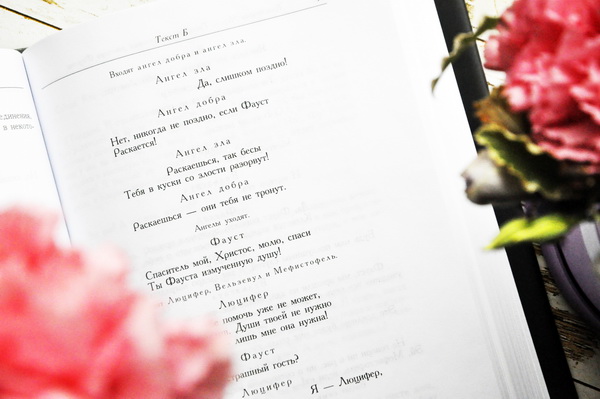 Текст Б
Входят ангел добра и ангел зла.
Ангел зла
Да, слишком поздно!
Ангел добра
Нет, никогда не поздно, если Фауст
Раскается!
Ангел зла
Раскаешься, так бесы
Тебя в куски со злости разорвут!
Ангел добра
Раскаешься — они тебя не тронут.
Ангелы уходят.
Фауст
Спаситель мой, Христос, молю, спаси
Ты Фауста измученную душу!
Люцифер, Вельзевул и Мефистофель.
Люцифер
помочь уже не может,
Души твоей не нужно
лишь мне она нужна!
Фауст
гость?
Люцифер
Я — Люцифер,